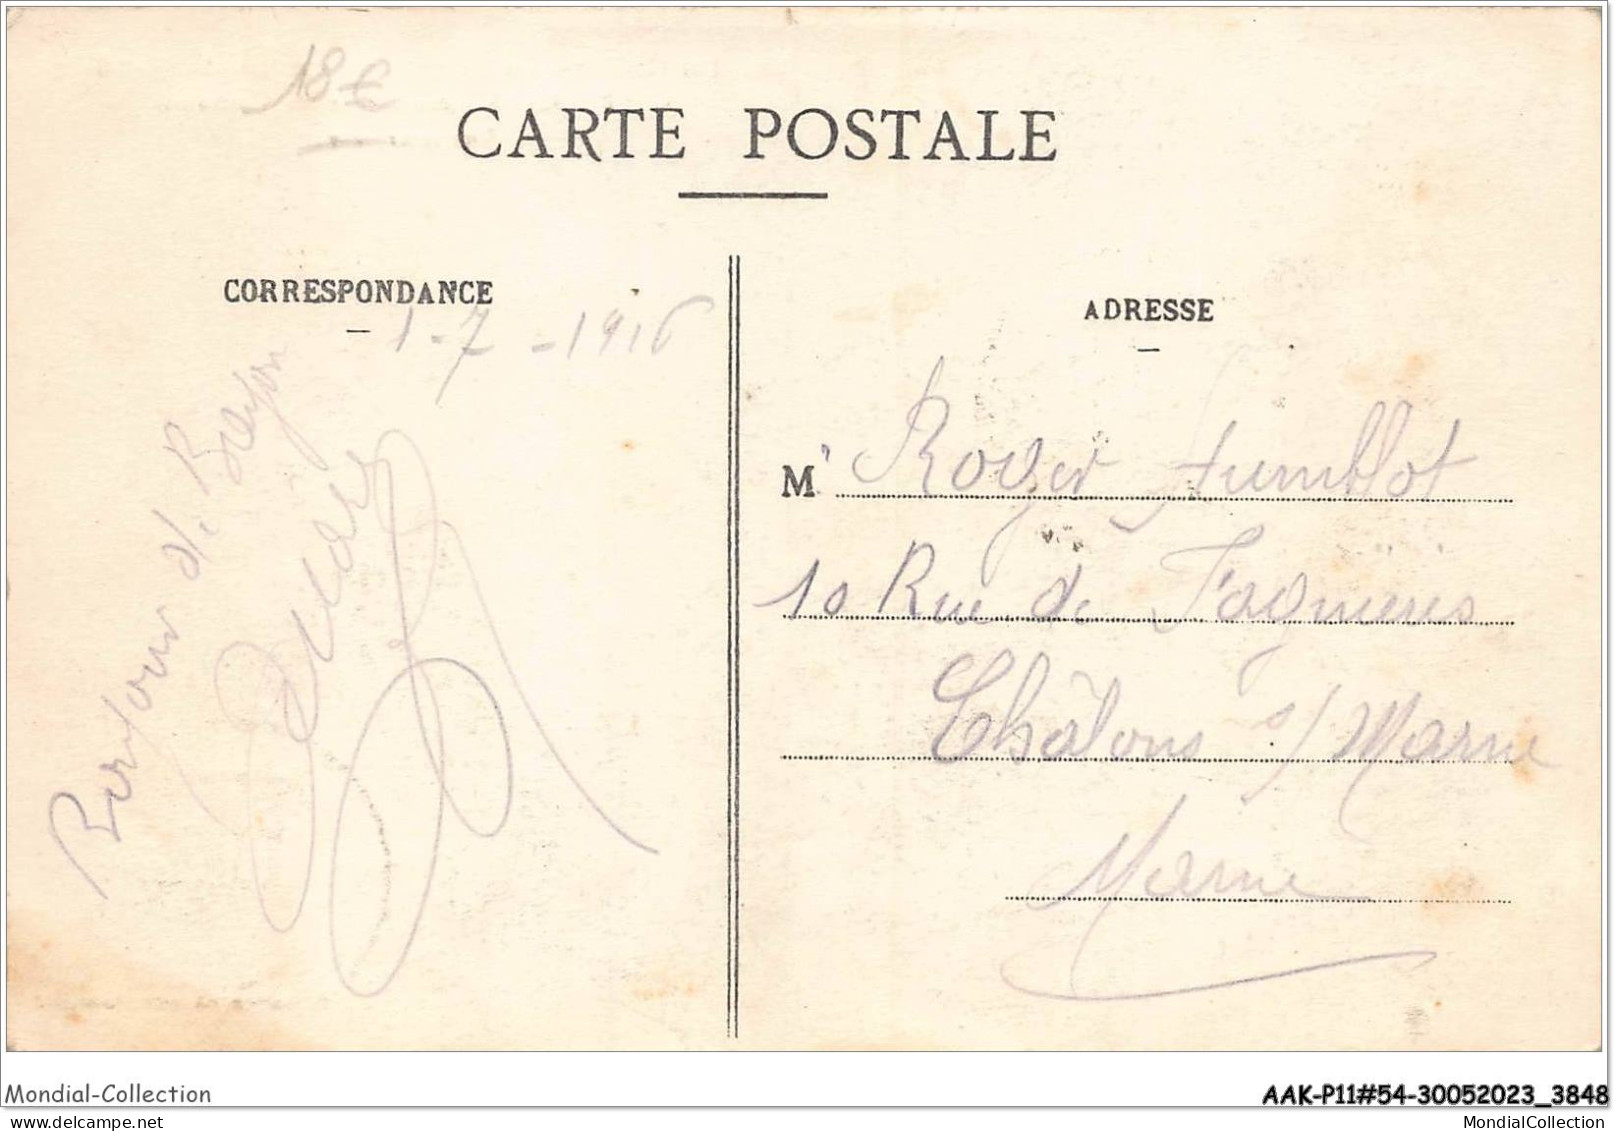 18€
CARTE POSTALE
CORRESPONDANCE
1-7-1916
Bonjour de Bayon
ADRESSE
Mr Roger Humblot
10 Rue de Fagnières
Châlons s/ Marne
Marne
Mondial-Collection
AAK-P11#54-30052023_3848
www.delcampe.net
MondialCollection